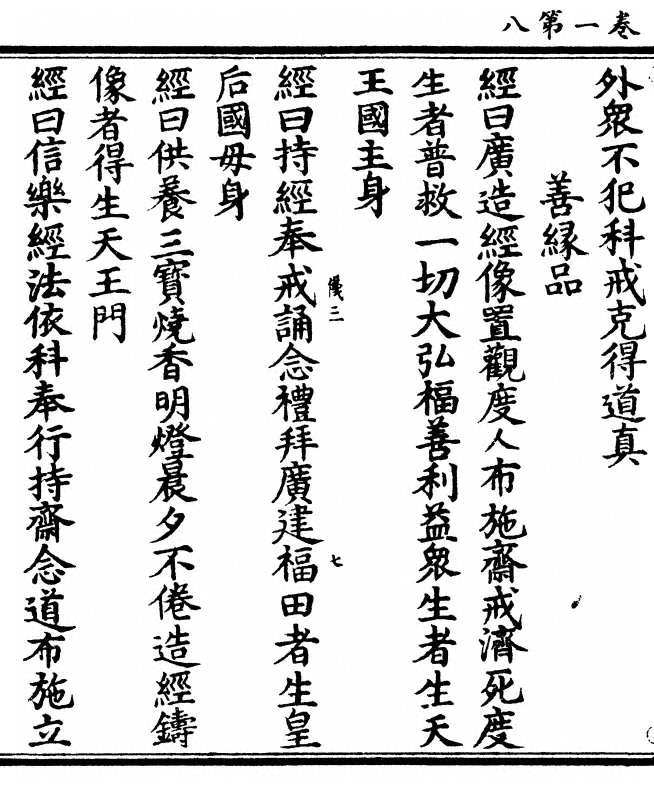 卷一第八
外衆不犯科戒克得道真
善縁品
經曰廣造經像置觀度人布施齋戒濟死度
生者普救一切大弘福善利益衆生者生天
王國主身
經曰持經奉戒誦念禮拜廣建福田者生皇
儀三
七
后國母身
經曰供養三寶燒香明燈晨夕不倦造經鑄
像者得生天王門
經曰信樂經法依科奉行持齋念道布施立